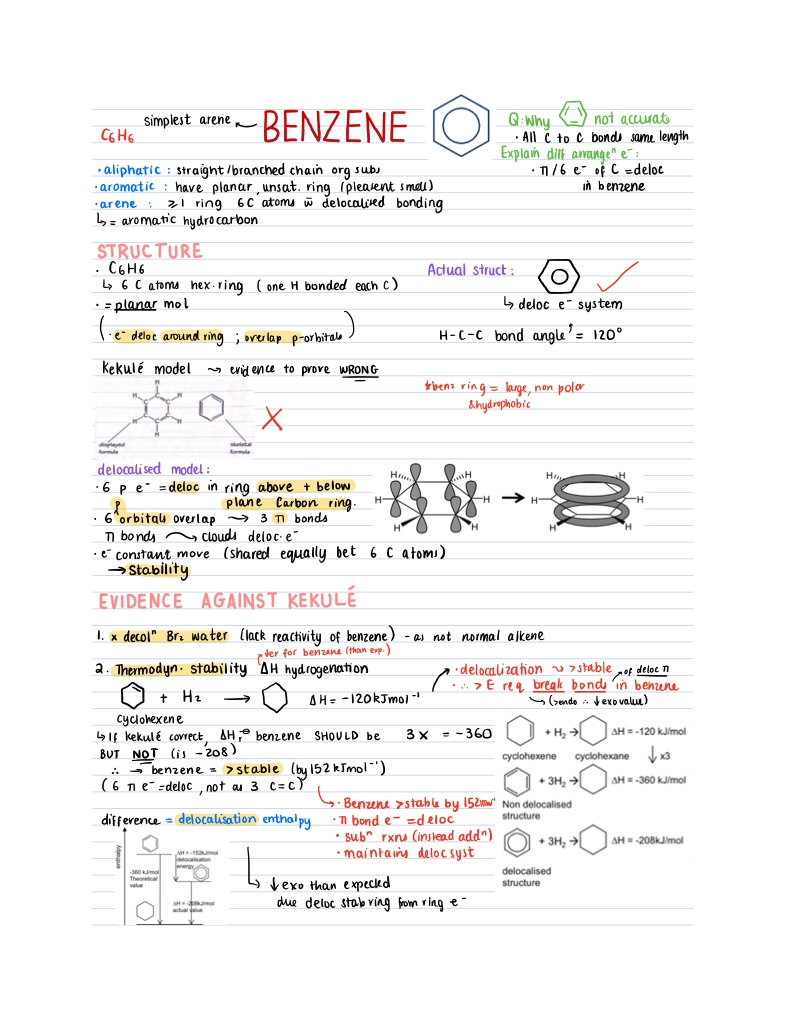 simplest arene BENZENE
C6H6
Q: Why not accurate
· All C to C bonds same length
Explain diff arrangeⁿ e⁻:
· π/6 e⁻ of C = deloc
in benzene
· aliphatic : straight/branched chain org subs
· aromatic : have planar, unsat. ring (pleasent smell)
· arene : ≥1 ring 6C atoms w̄ delocalised bonding
↳ = aromatic hydrocarbon
STRUCTURE
· C6H6
↳ 6 C atoms hex. ring (one H bonded each C)
· = planar mol
( · e⁻ deloc around ring ; overlap p-orbitals )
Actual struct :
↳ deloc e⁻ system
H-C-C bond angle = 120°
Kekulé model ⤳ evidence to prove WRONG
displayed formula
skeletal formula
*benz ring = large, non polar
& hydrophobic
delocalised model:
· 6 p e⁻ = deloc in ring above + below
plane Carbon ring.
· 6 p orbitals overlap → 3 π bonds
π bonds → clouds deloc. e⁻
· e⁻ constant move (shared equally bet 6 C atoms)
→ Stability
EVIDENCE AGAINST KEKULÉ
1. x decolⁿ Br₂ water (lack reactivity of benzene) - as not normal alkene
for benzene (than exp.)
2. Thermodyn. stability ΔH hydrogenation
+ H₂ → ΔH = -120kJmol⁻¹
cyclohexene
· delocalization ⤳ >stable of deloc π
· ∴ > E req break bonds in benzene
(>endo ∴ ↓exo value)
↳ If kekulé correct, ΔHr⦵ benzene SHOULD be 3 x = -360
BUT NOT (is -208)
∴ → benzene = >stable (by 152 kJmol⁻¹)
(6 π e⁻ = deloc, not as 3 C=C)
· Benzene >stable by 152
· π bond e⁻ = deloc
· subⁿ rxns (instead addⁿ)
· maintains deloc syst
+ H₂ → ΔH = -120 kJ/mol
cyclohexene cyclohexane x3
+ 3H₂ → ΔH = -360 kJ/mol
Non delocalised
structure
+ 3H₂ → ΔH = -208kJ/mol
delocalised
structure
difference = delocalisation enthalpy
enthalpy
-360 kJ/mol
Theoretical
value
ΔH = -152kJ/mol
delocalisation
energy
ΔH = -208kJ/mol
actual value
↳ ↓ exo than expected
due deloc stab ring from ring e⁻